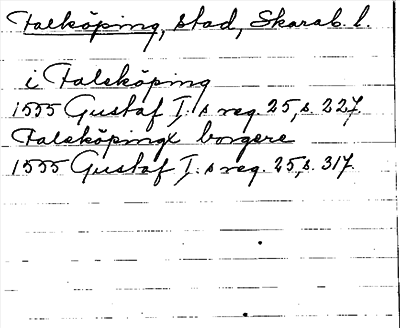 Falköping, stad, Skarab. l.
i Falekøping
1555 Gustaf I:s reg. 25, s. 227.
Falekøpingx borgere
1555 Gustaf I:s reg. 25, s. 317.